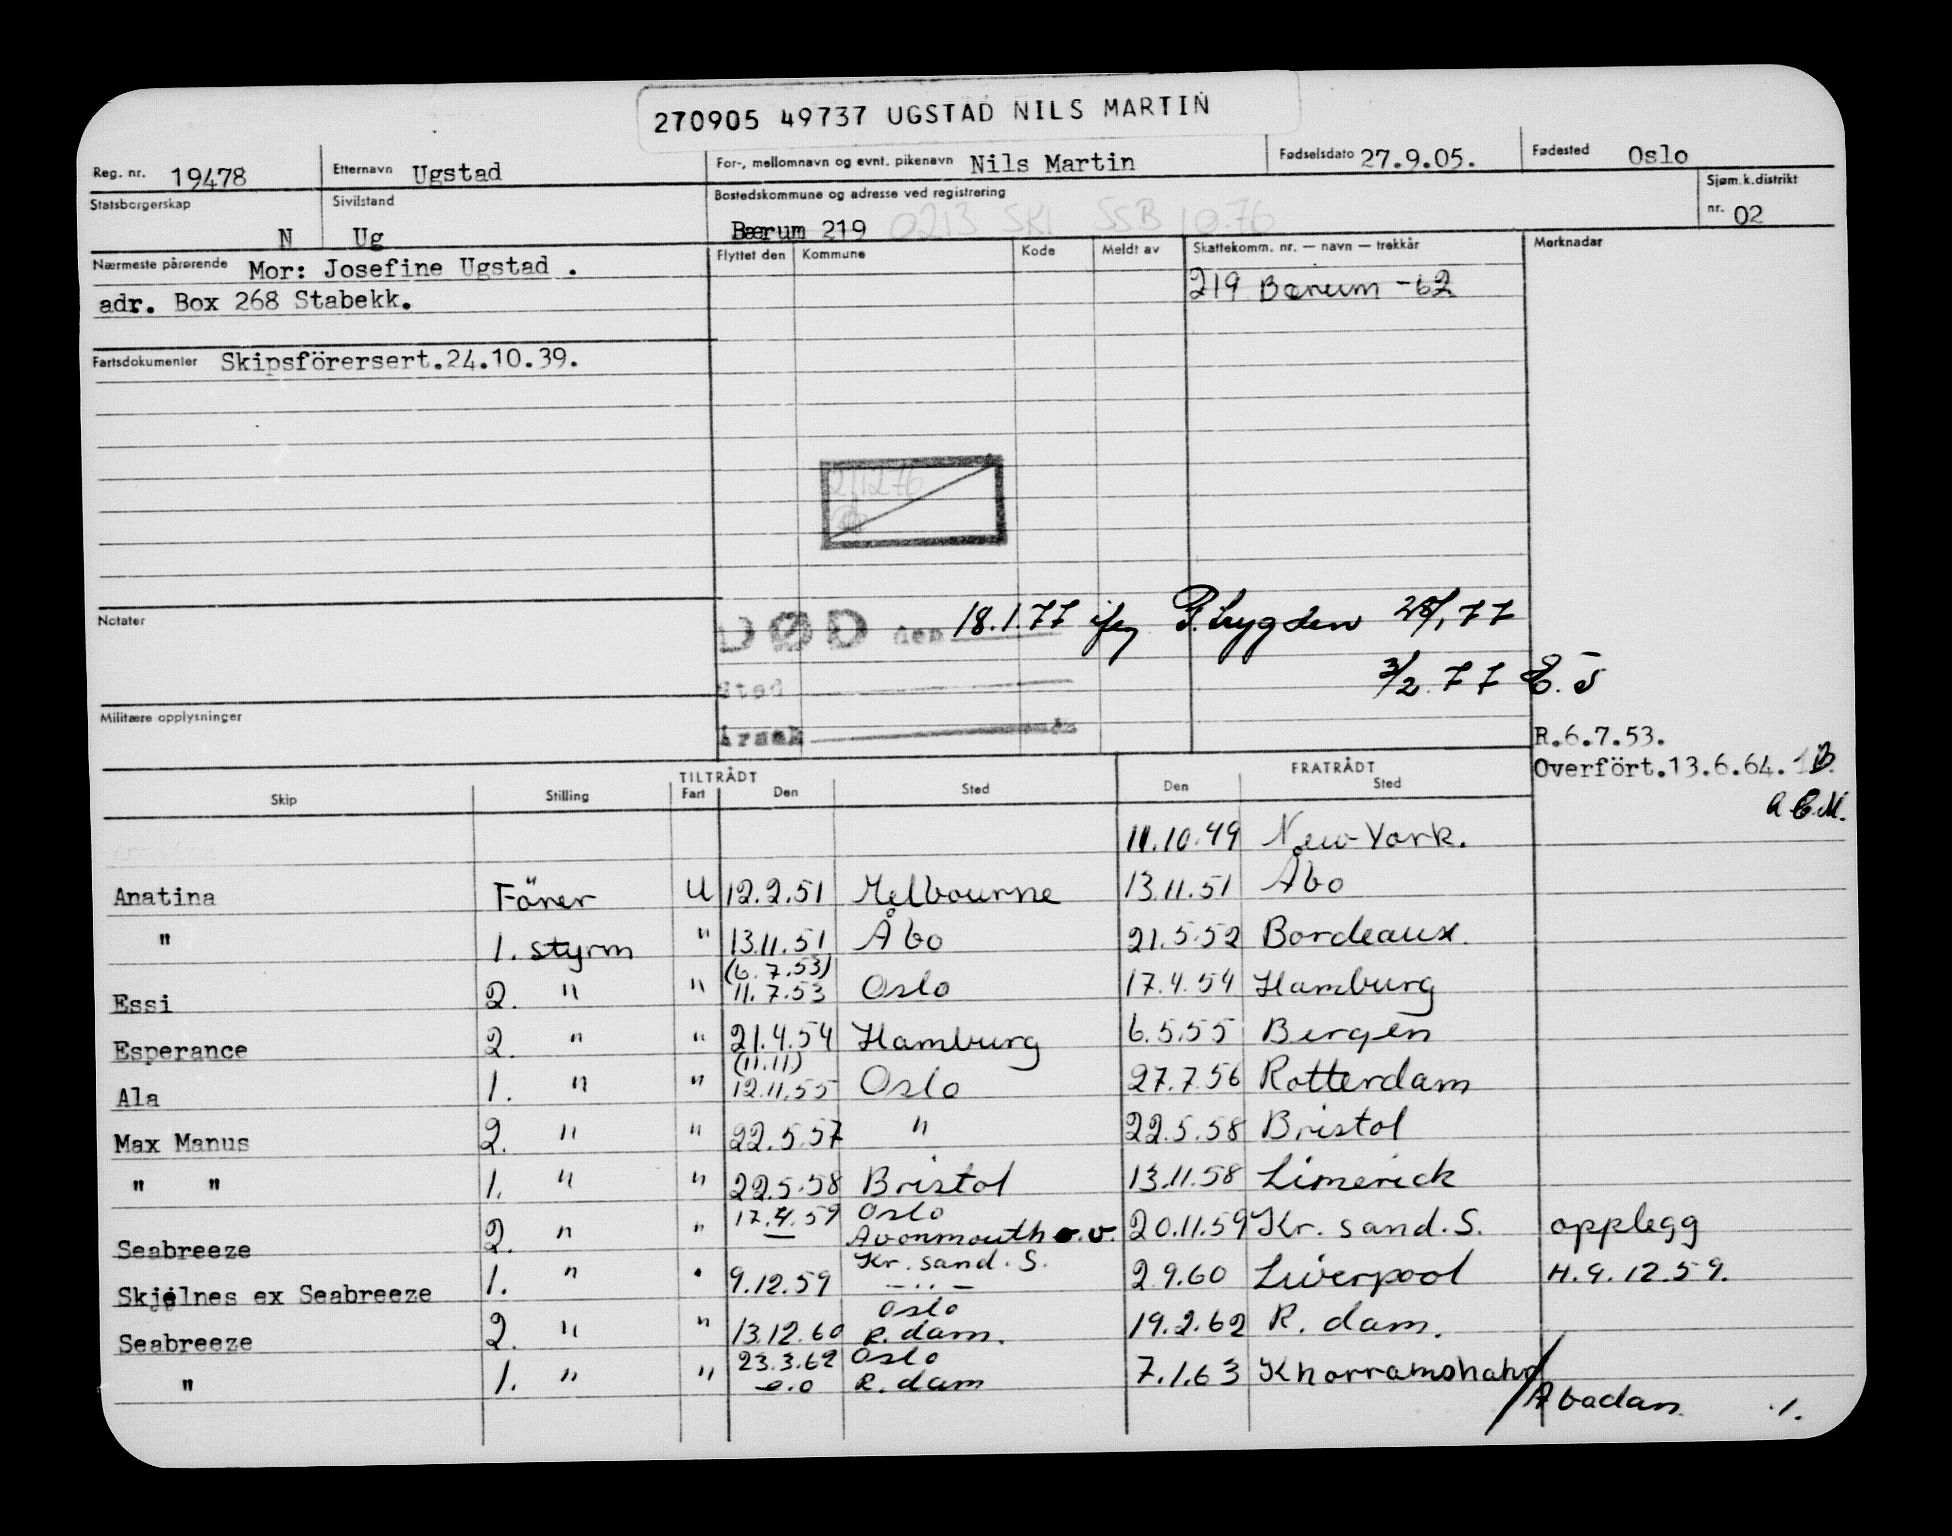 270905 49737 UGSTAD NILS MARTIN
Reg. nr. 19478 Etternavn Ugstad For-, mellomnavn og evnt. pikenavn Nils Martin Fødselsdato 27.9.05. Fødested Oslo
Statsborgerskap N Sivilstand Ug Bostedskommune og adresse ved registrering Bærum 219 0213 SKI SSB 10.76 Sjøm.k.distrikt nr. 02
Nærmeste pårørende Mor: Josefine Ugstad .
adr. Box 268 Stabekk.
Flyttet den Kommune Kode Meldt av Skattekomm. nr. — navn — trekkår Merknader
219 Bærum -62
Fartsdokumenter Skipsförersert.24.10.39.
Notater
DØD den 18.1.77 P. Lygden 28/1 77
Sted 3/2 77
Årsak
Militære opplysninger
R.6.7.53.
Overfört.13.6.64.
Skip Stilling TILTRÅDT Fart Den Sted FRATRÅDT Den Sted
11.10.49 New York.
Anatina Förer U 12.2.51 Melbourne 13.11.51 Åbo
" 1. styrm " 13.11.51 Åbo 21.5.52 Bordeaux.
Essi 2. " " (6.7.53) 11.7.53 Oslo 17.4.54 Hamburg
Esperance 2. " " 21.4.54 Hamburg 6.5.55 Bergen
Ala 1. " " (11.11) 12.11.55 Oslo 27.7.56 Rotterdam
Max Manus 2. " " 22.5.57 " 22.5.58 Bristol
" " 1. " " 22.5.58 Bristol 13.11.58 Limerick
Seabreeze 2. " " 17.4.59 — Oslo Avonmouth o.v. 20.11.59 Kr. sand. S. opplegg
Skjelnes ex Seabreeze 1. " " 9.12.59 Kr. sand. S. — .. — 2.9.60 Liverpool H. 9.12.59.
Seabreeze 2. " " 13.12.60 Oslo R. dam. 19.2.62 R. dam.
" 1. " " 23.3.62 Oslo R. dam 7.1.63 Khorramshahr/
Abadan 1.